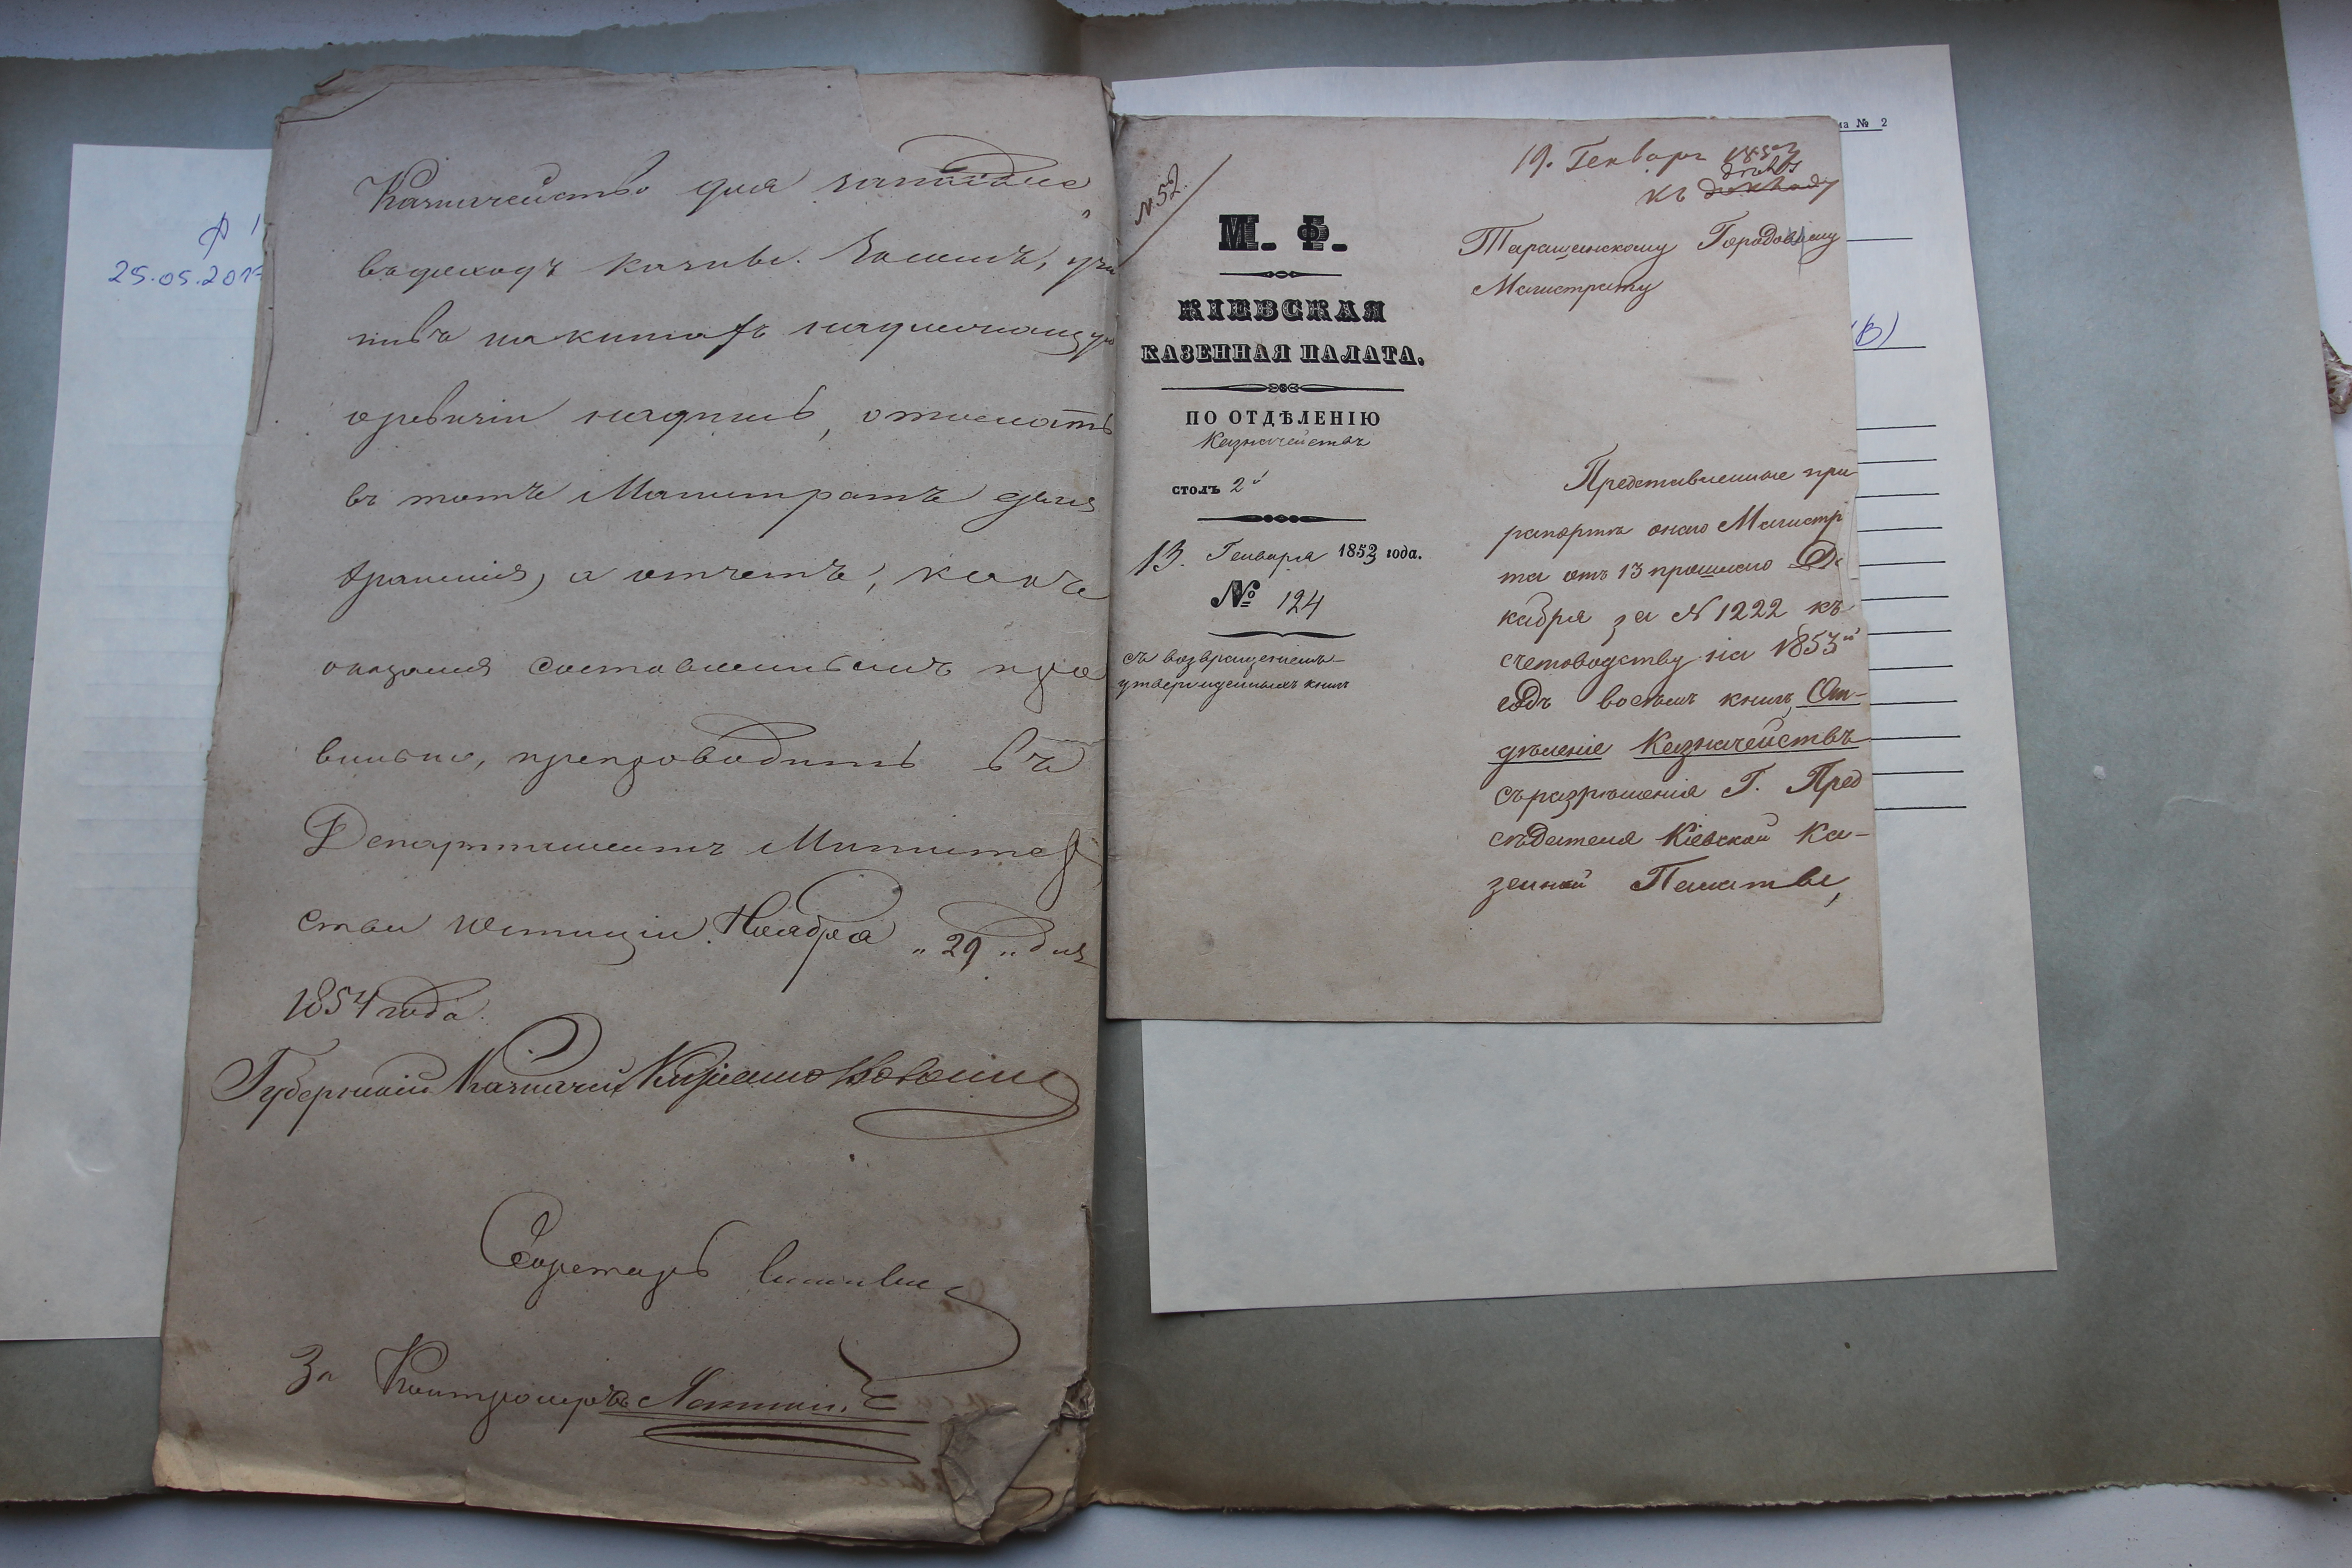 Казначейство для записки
въ доходъ казны. Засимъ, учи
нивъ на книгахъ надлежащую
о ревизіи надпись, отослать
въ тотъ Магистратъ для
храненія, а отчетъ, какъ
оказался составленнымъ пра
вильно, препроводить въ
Департаментъ Министер
ства Юстиціи. Ноября „29„ дня
1854 года.
Губернскій Казначей
Секретарь
За Контролера
25.05.201
№ 52.
М. Ф.
КІЕВСКАЯ
КАЗЕННАЯ ПАЛАТА.
ПО ОТДѢЛЕНІЮ
Казначействъ
столъ 2й
13. Генваря 1853 года.
№ 124
съ возвращеніемъ
утвержденныхъ книгъ
19. Генваря 1853
къ докладу
Таращанскому Городовому
Магистрату
Представленные при
рапортѣ онаго Магистр
та отъ 13 прошлаго Де
кабря за № 1222 къ
счетоводству на 1853й
годъ восемь книгъ, От-
дѣленіе Казначействъ
съ разрѣшенія Г. Пред
сѣдателя Кіевской Ка-
зенной Палаты,
№ 2
(В)